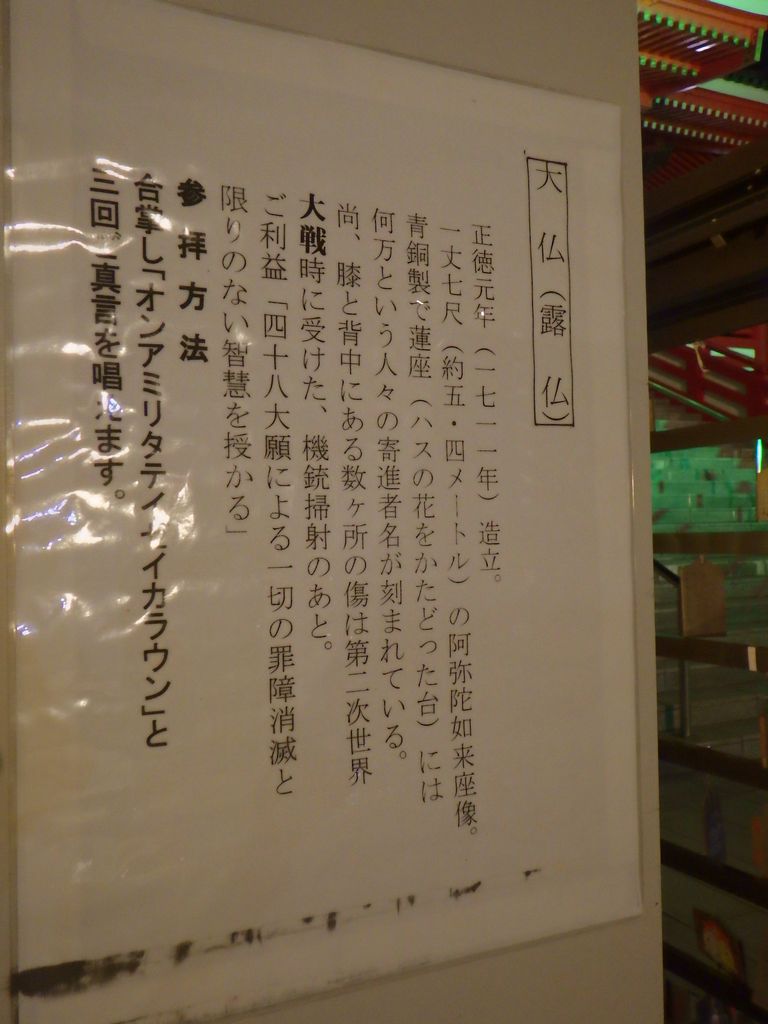 大仏（露仏）
正徳元年（一七一一年）造立。
一丈七尺（約五・四メートル）の阿弥陀如来座像。
青銅製で蓮座（ハスの花をかたどった台）には
何万という人々の寄進者名が刻まれている。
尚、膝と背中にある数ヶ所の傷は第二次世界
大戦時に受けた、機銃掃射のあと。
ご利益「四十八大願による一切の罪障消滅と
限りのない智慧を授かる」
参拝方法
合掌し「オンアミリタテイセイカラウン」と
三回ご真言を唱えます。